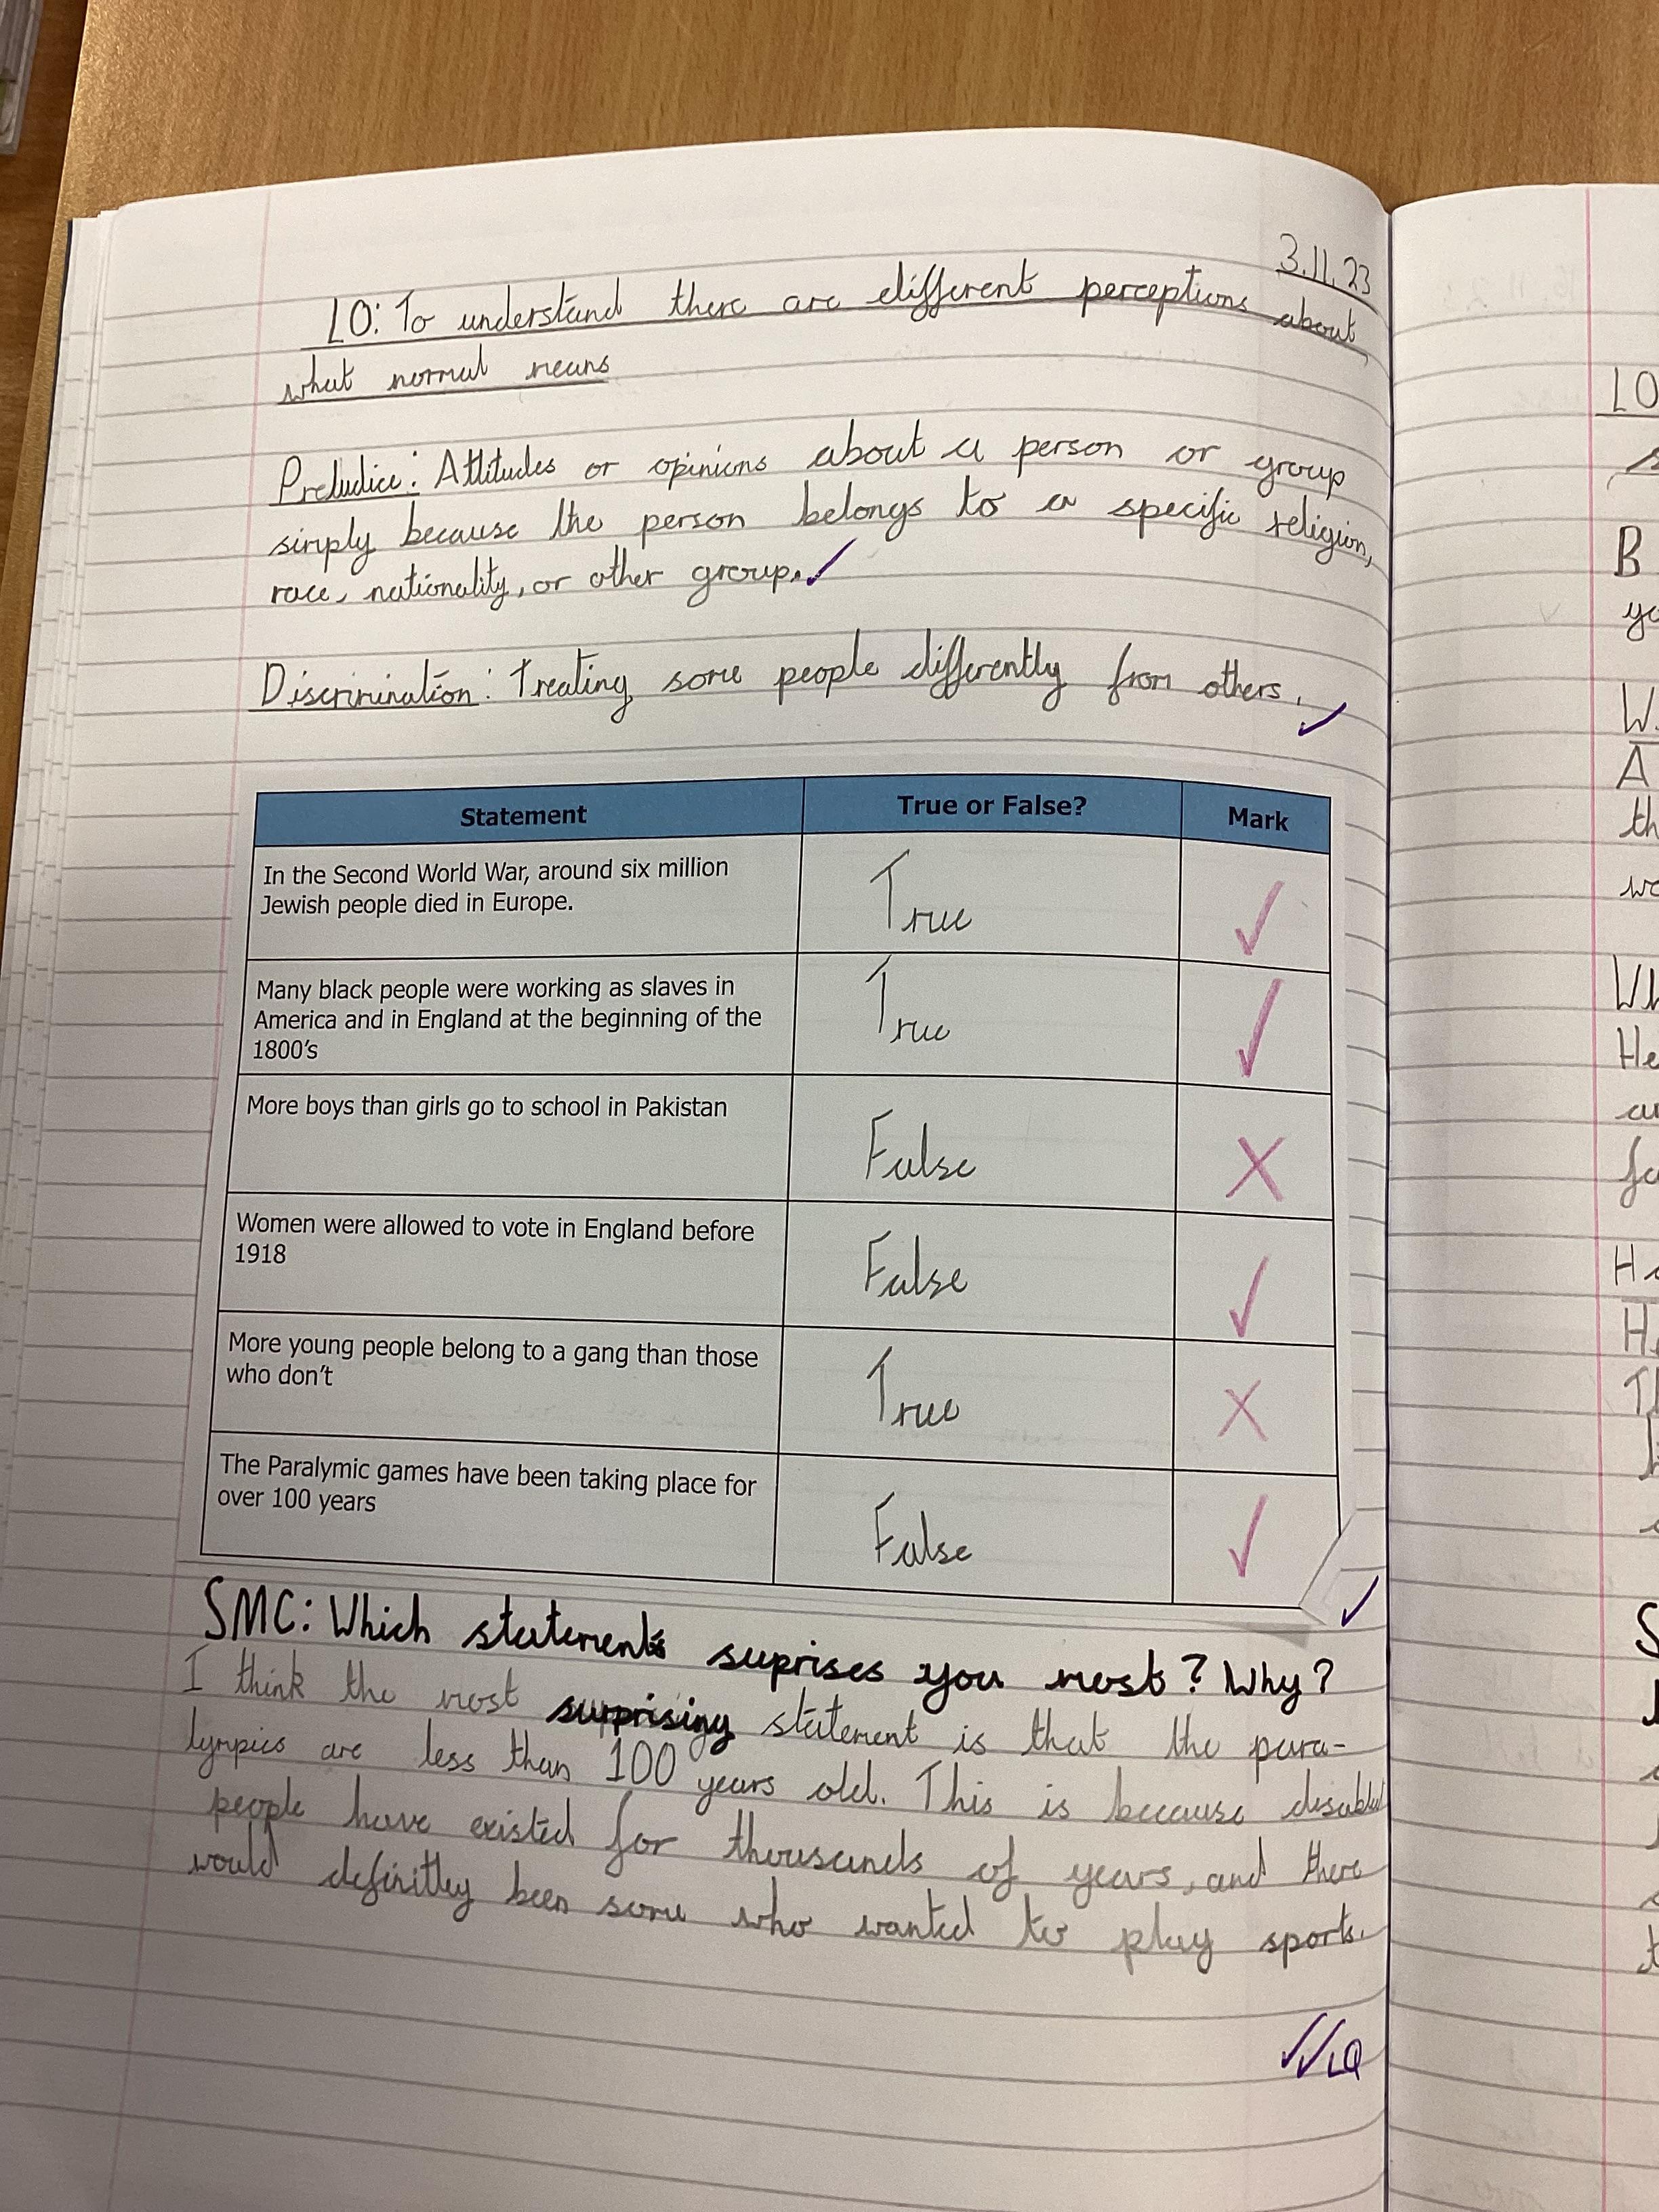 3.11.23
LO: To understand there are different perceptions about
what normal means
Preludice: Attitudes or opinions about a person or group
simply because the person belongs to a specific religion,
race, nationality, or other group.
Discrimination: Treating some people differently from others.
Statement True or False? Mark
In the Second World War, around six million True
Jewish people died in Europe.
Many black people were working as slaves in True
America and in England at the beginning of the
1800's
More boys than girls go to school in Pakistan False
Women were allowed to vote in England before False
1918
More young people belong to a gang than those True
who don't
The Paralymic games have been taking place for False
over 100 years
SMC: Which statements suprises you most? Why?
I think the most surprising statement is that the para-
lympics are less than 100 years old. This is because disabled
people have existed for thousands of years, and there
would definitley been some who wanted to play sports.
LO
B
yo
W.
A
th
wo
Wh
He